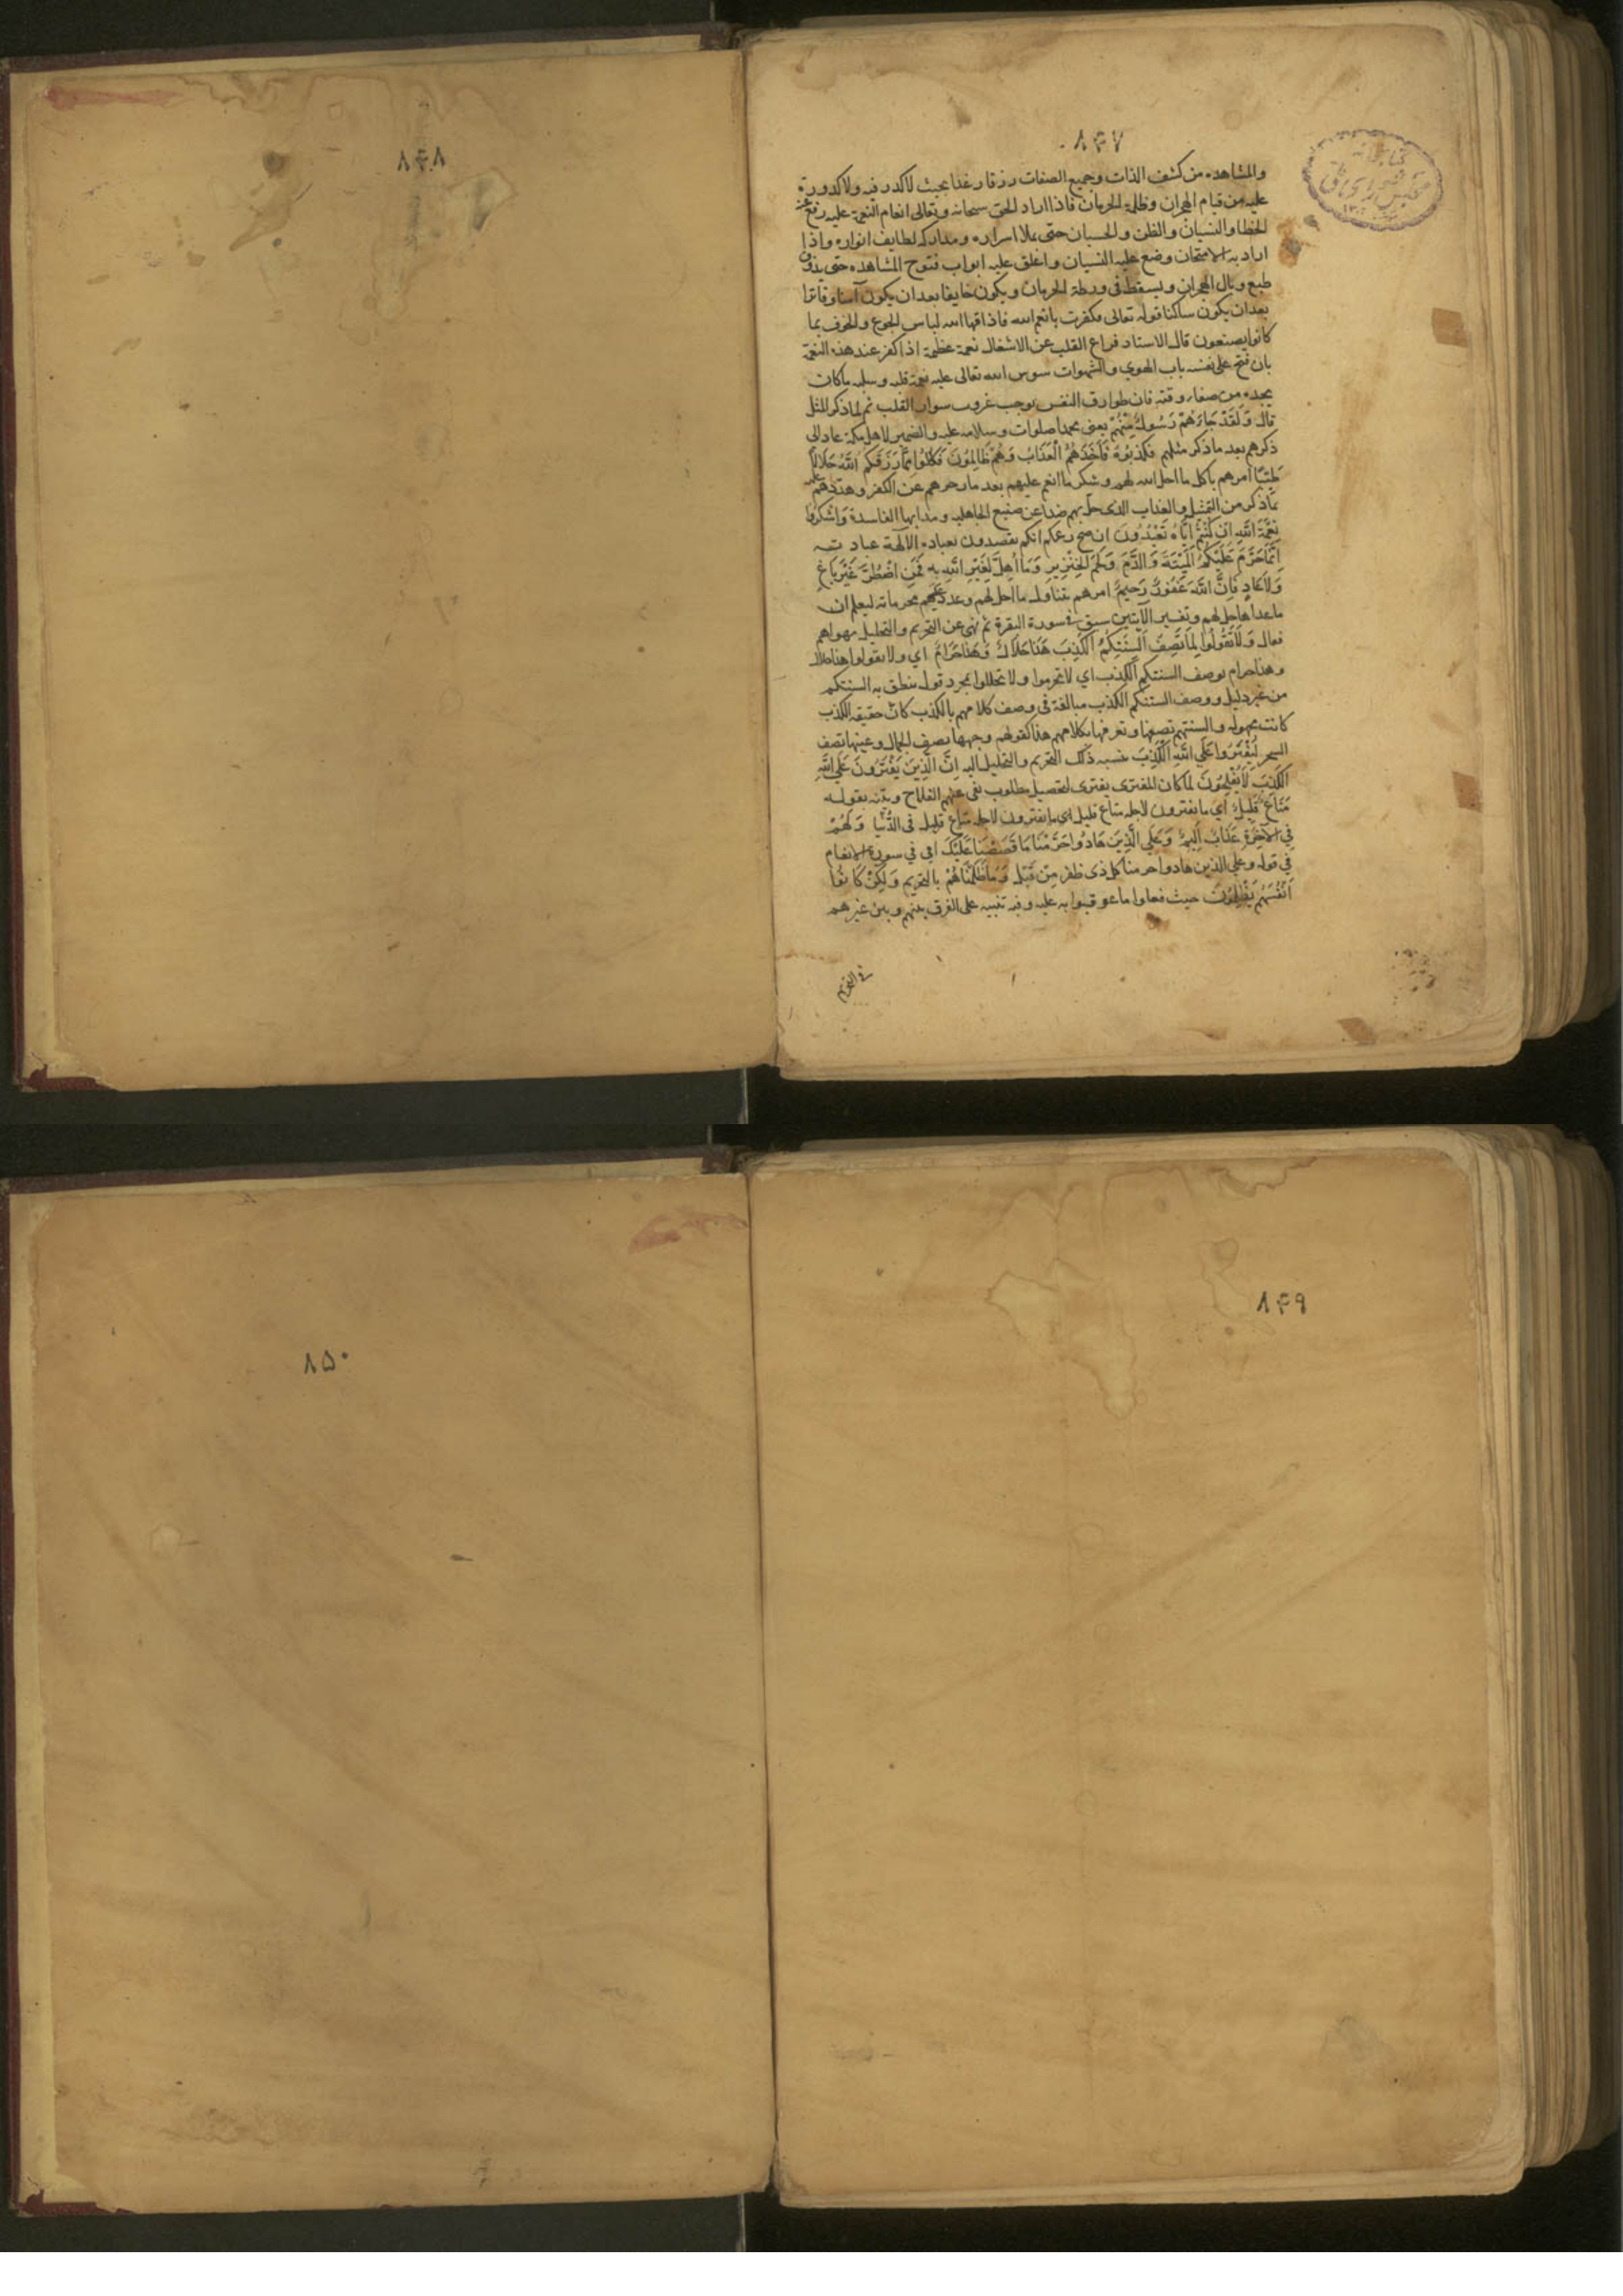 ۸۴۷
والمشاهده من كشف الذات وجميع الصفات رزقا رغدا بحيث لا كدر فيه ولا كدورة
عليه من قيام الهجران وظلمة الحرمان فاذا اراد الحق سبحانه وتعالى انعام النعمة عليه رفع عنه
الخطا والنسيان والظن والحسبان حتى يملا اسراره ومداركه لطايف انواره واذا
اراد به الامتحان وضع عليه النسيان واغلق عليه ابواب فتوح المشاهده حتى يذوق
طبع وبال الهجران ويسقط فى ورطة الحرمان ويكون خايفا بعد ان يكون آمنا وفاترا
بعد ان يكون ساكنا قوله تعالى فكفرت بانعم الله فاذاقها الله لباس الجوع والخوف بما
كانوا يصنعون قال الاستاد فراغ القلب عن الاشغال نعمة عظيمة اذا كفر عند هذه النعمة
بان فتح على نفسه باب الهوي والشهوات سوس الله تعالى عليه نعمة قلبه وسلبه ما كان
يجده من صفاء وقته فان طوارق النفس يوجب غروب سوارق القلب ثم لما ذكر المثل
قال وَلَقَدْ جَاءَهُمْ رَسُولٌ مِنْهُمْ يعنى محمدا صلوات وسلامه عليه والضمير لاهل مكة عاد الى
ذكرهم بعد ما ذكر مثلهم فَكَذَّبُوهُ فَأَخَذَهُمُ الْعَذَابُ وَهُمْ ظَالِمُونَ فَكُلُوا مِمَّا رَزَقَكُمُ اللَّهُ حَلَالًا
طَيِّبًا امرهم باكل ما احل الله لهم وشكر ما انعم عليهم بعد ما زجرهم عن الكفر وهددهم عليه
بما ذكر من التمثيل والعذاب الذى حل بهم صدا عن صنيع الجاهليه ومذابها الفاسدة وَاشْكُرُوا
نِعْمَةَ اللَّهِ اِنْ كُنْتُمْ اِيَّاهُ تَعْبُدُونَ ان صح زعمكم انكم تقصدون بعبادة الآلهة عبادته
اِنَّمَا حَرَّمَ عَلَيْكُمُ الْمَيْتَةَ وَالدَّمَ وَلَحْمَ الْخِنْزِيرِ وَمَا اُهِلَّ لِغَيْرِ اللَّهِ بِهِ فَمَنِ اضْطُرَّ غَيْرَ بَاغٍ
وَلَا عَادٍ فَاِنَّ اللَّهَ غَفُورٌ رَحِيمٌ امرهم بتناول ما احل لهم وعدد عليهم محرماته ليعلم ان
ما عداها حل لهم وتفسير الآيتين سبق فى سورة البقرة ثم نهى عن التحريم والتحليل بهواهم
فقال وَلَا تَقُولُوا لِمَا تَصِفُ اَلْسِنَتُكُمُ الْكَذِبَ هَذَا حَلَالٌ وَهَذَا حَرَامٌ اي ولا تقولوا هذا حلال
وهذا حرام بوصف السنتكم الكذب اي لا تحرموا ولا تحللوا بمجرد قول ينطق به السنتكم
من غير دليل ووصف السنتكم الكذب مبالغة فى وصف كلامهم بالكذب كان حقيقة الكذب
كانت مجهوله والسنتهم تصفها وتعرفها بكلامهم هذا كقولهم وجهها يصف الجمال وعينها تصف
السحر لِتَفْتَرُوا عَلَى اللَّهِ الْكَذِبَ بنسبه ذلك التحريم والتحليل اليه اِنَّ الَّذِينَ يَفْتَرُونَ عَلَى اللَّهِ
الْكَذِبَ لَا يُفْلِحُونَ لما كان المفترى يفترى لتحصيل مطلوب نفى عنهم الفلاح وبينه بقوله
مَتَاعٌ قَلِيلٌ اي ما يفترون لاجله متاع قليل اى ما يفترون لاجله متاع قليل فى الدُّنْيَا وَلَهُمْ
فِي الْآخِرَةِ عَذَابٌ اَلِيمٌ وَعَلَى الَّذِينَ هَادُوا حَرَّمْنَا مَا قَصَصْنَا عَلَيْكَ اي في سورة الانعام
في قوله وعلى الذين هادوا حرمنا كل ذى ظفر مِنْ قَبْلُ وَمَا ظَلَمْنَاهُمْ بالتحريم وَلَكِنْ كَانُوا
اَنْفُسَهُمْ يَظْلِمُونَ حيث فعلوا ما عوقبوا به عليه وفيه تنبيه على الفرق بينهم وبين غيرهم
فى التحريم
۸۴۸
كتابخانه
مجلس شورای ملی
۸۴۹
۸۵۰